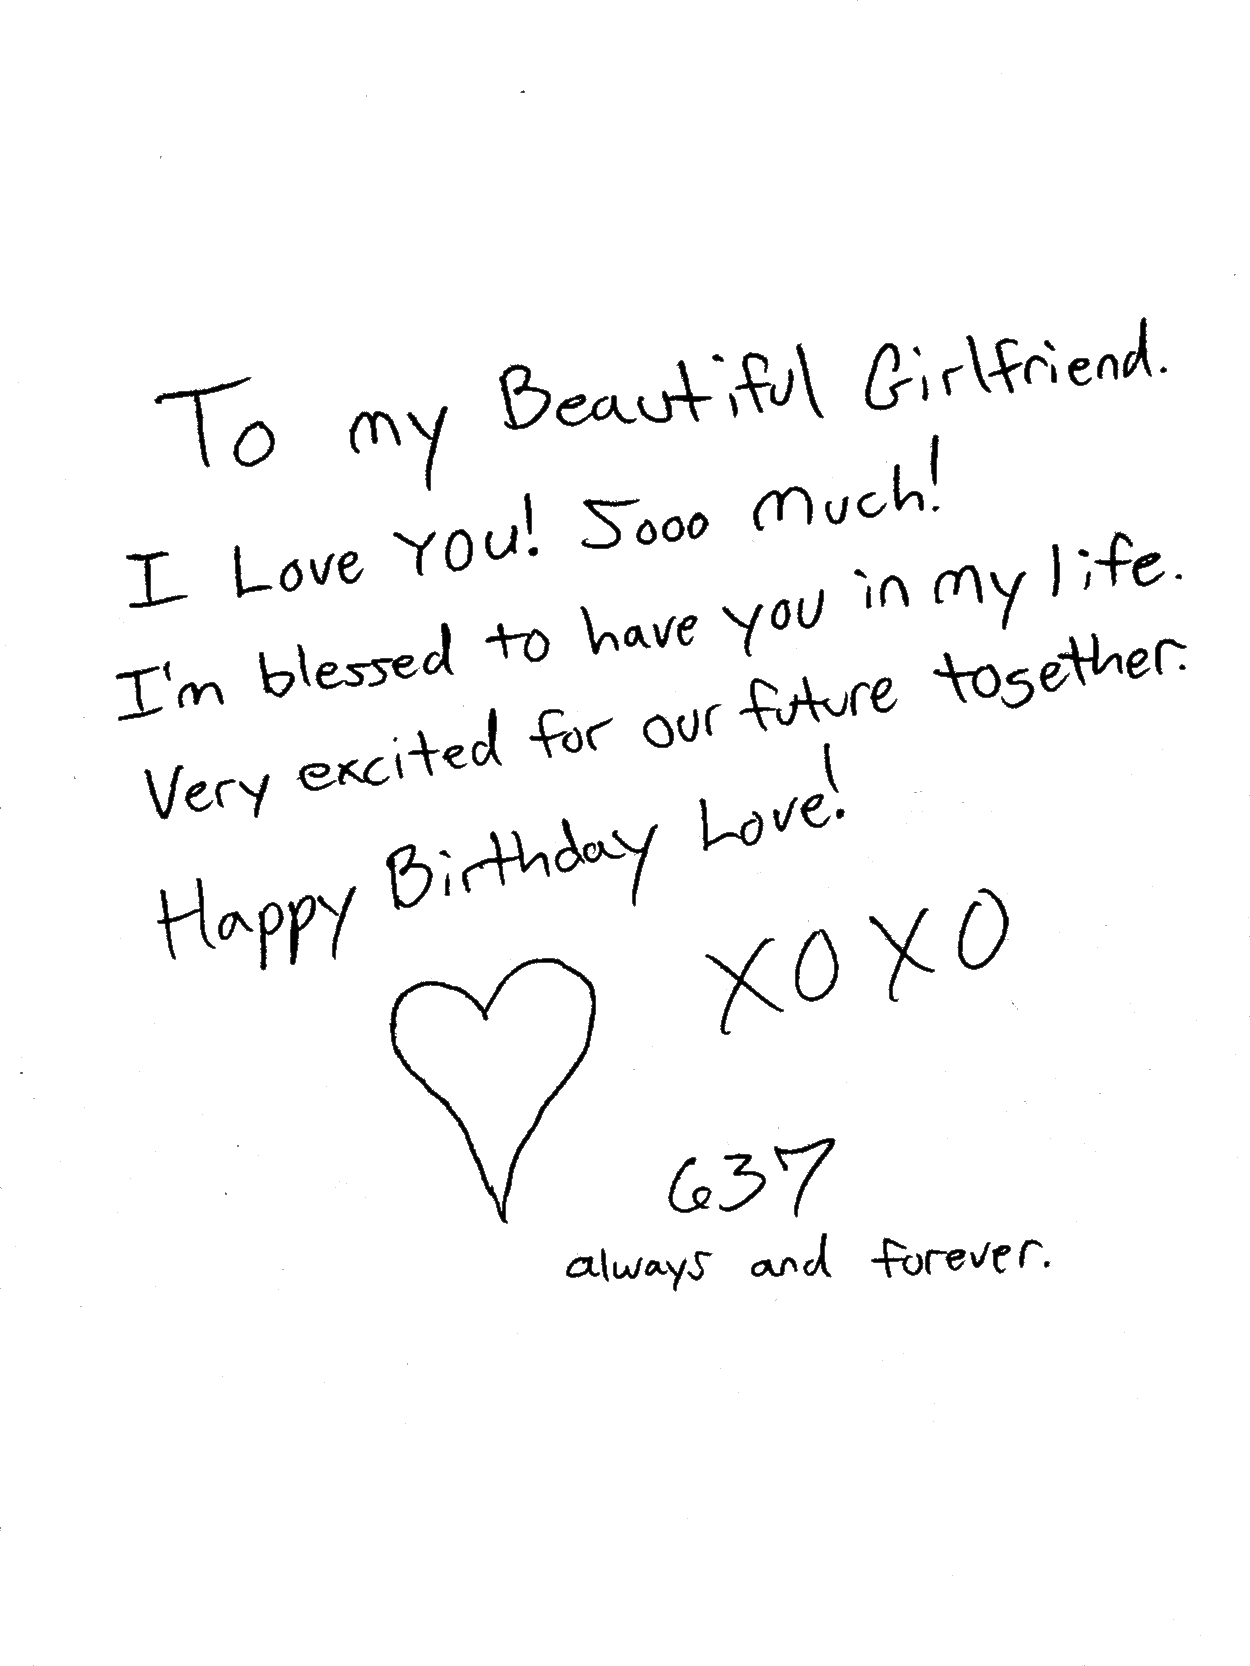 To my Beautiful Girlfriend.
I Love YOU! Sooo much!
I'm blessed to have you in my life.
Very excited for our future together.
Happy Birthday Love!
XOXO
637
always and forever.